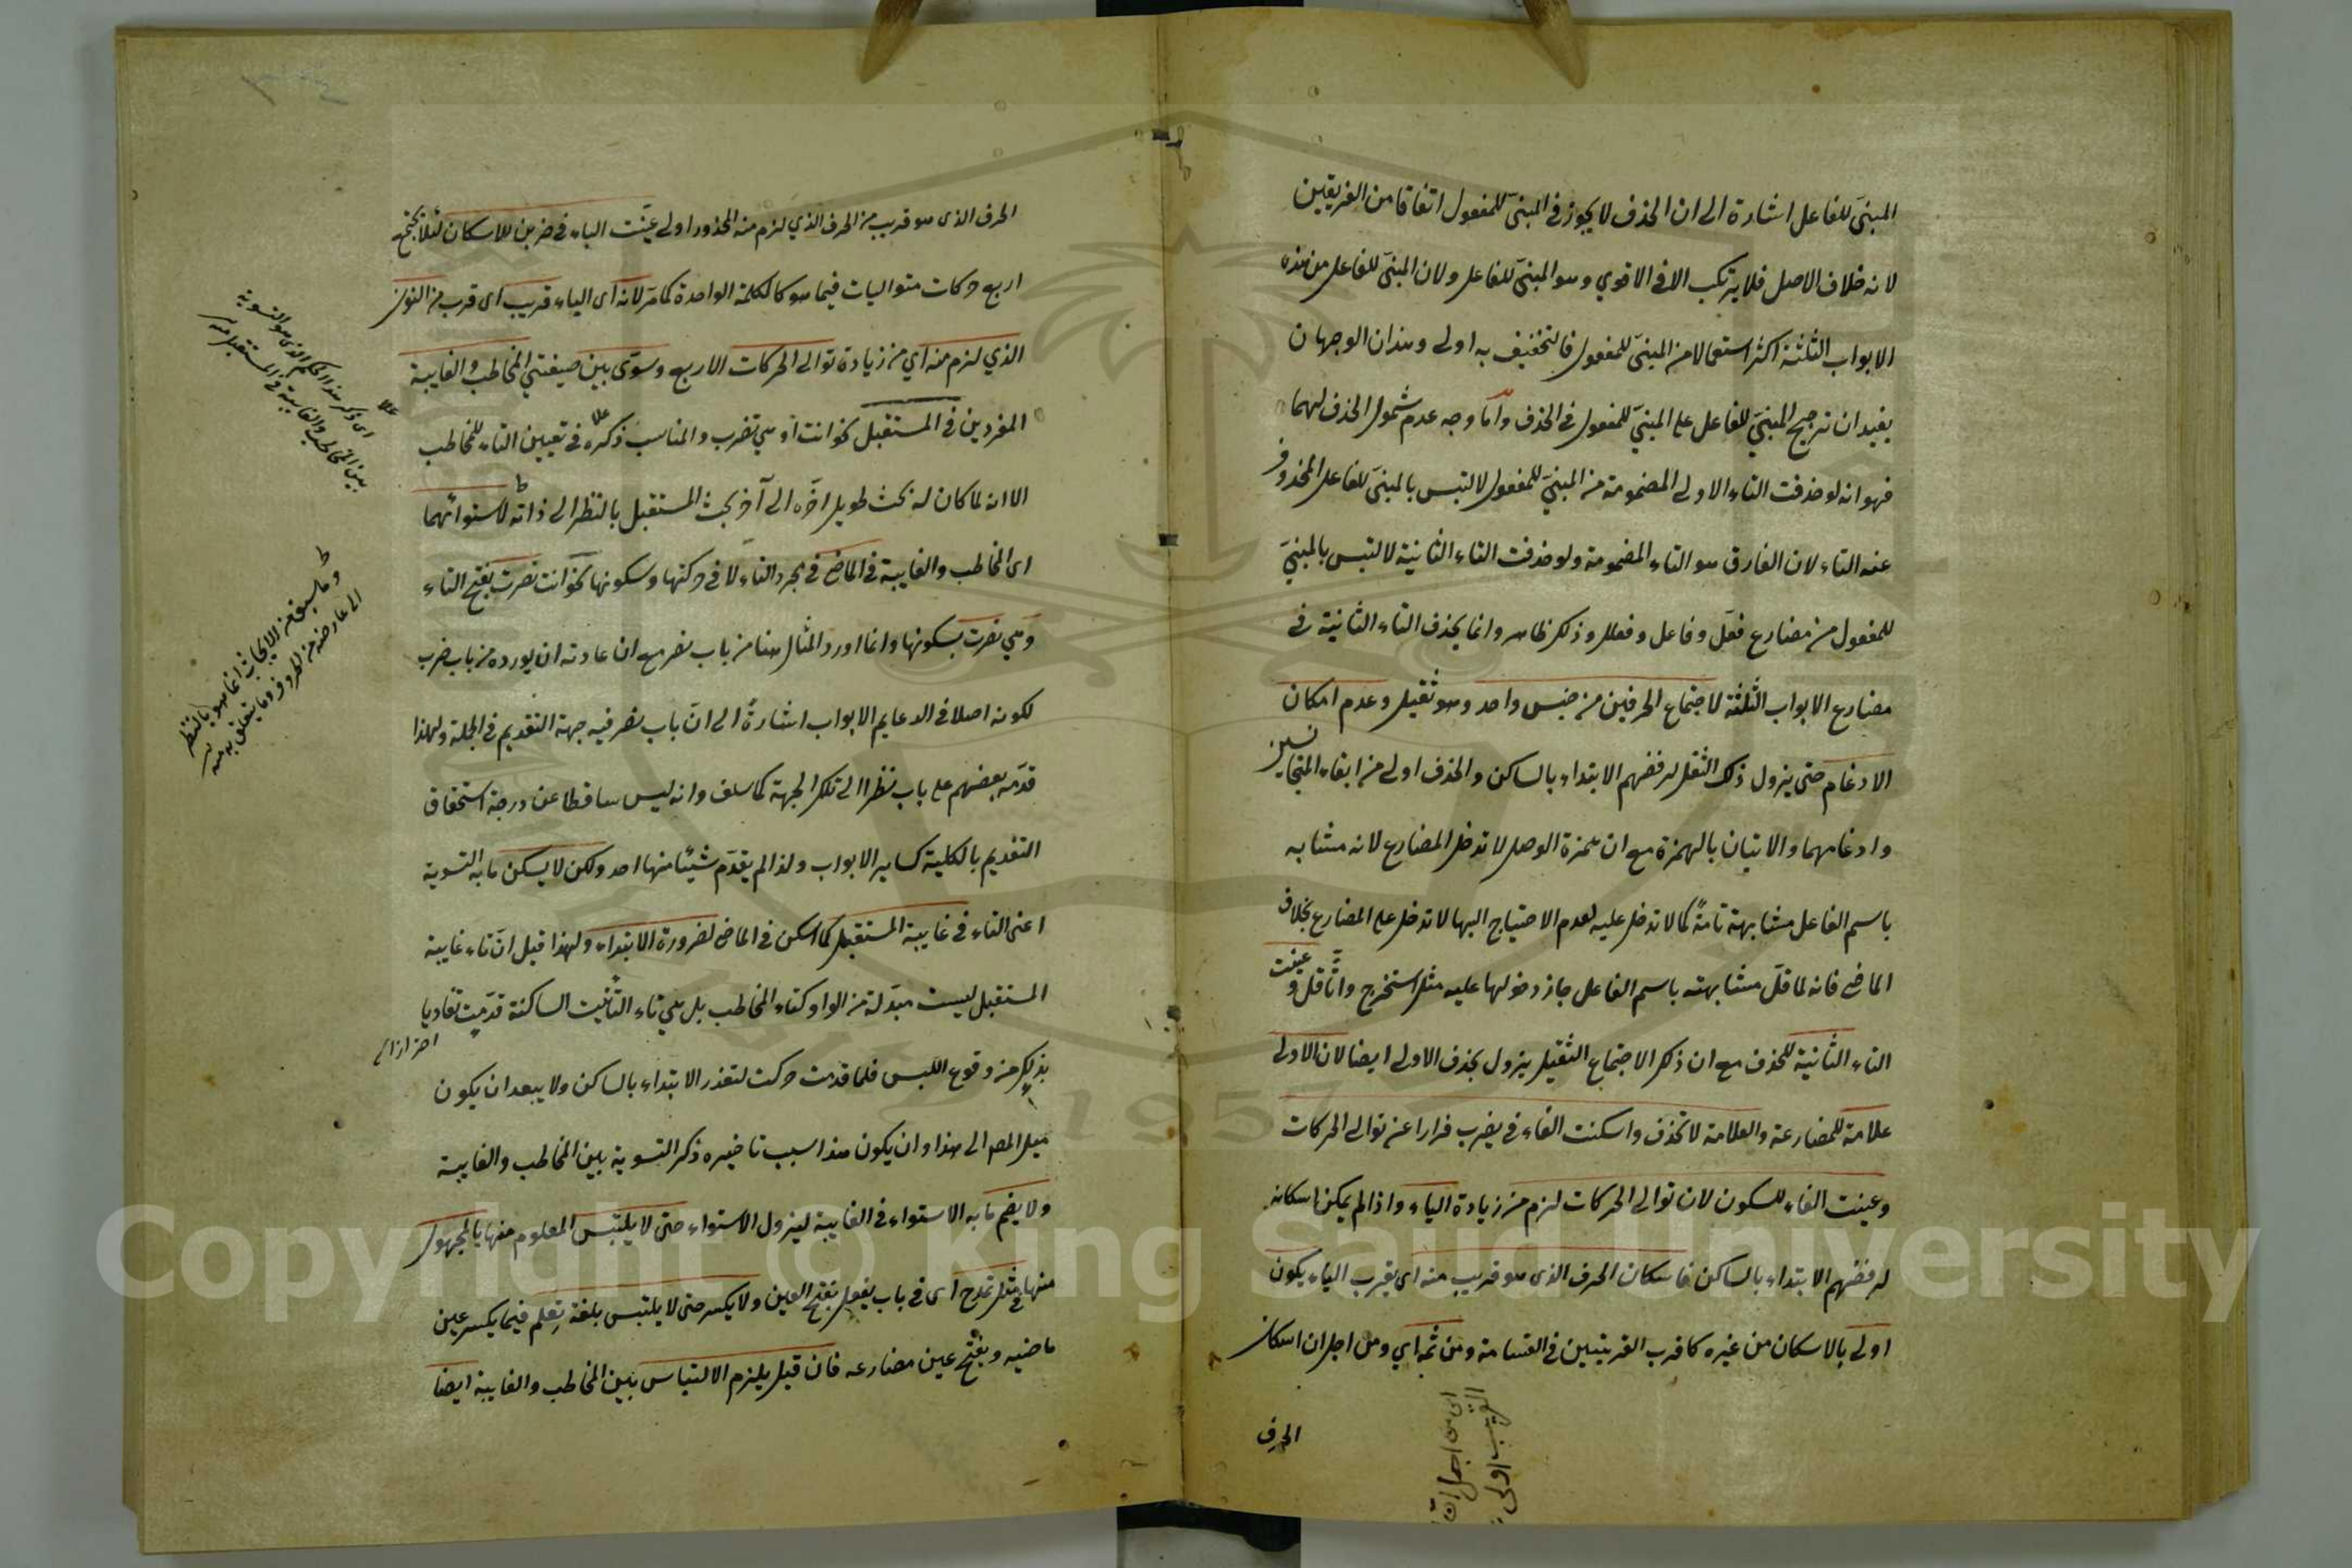 المبنيّ للفاعل اشارة الى ان الحذف لا يجوز في المبنيّ للمفعول اتفاقا من الفريقين
لانه خلاف الاصل فلا يرتكب الا في الاقوي وهو المبنيّ للفاعل ولان المبنيّ للفاعل من هذه
الابواب الثلثة اكثر استعمالا من المبنيّ للمفعول فالتخفيف به اولى وهذان الوجهان
يفيد ان ترجيح المبنيّ للفاعل على المبنيّ للمفعول في الحذف وامّا وجه عدم شمول الحذف لهما
فهو انه لو حذفت التاء الاولى المضمومة من المبنيّ للمفعول لالتبس بالمبنيّ للفاعل المحذوف
عنه التاء لان الفارق هو التاء المضمومة ولو حذفت التاء الثانية لالتبس بالمبنيّ
للمفعول من مضارع فعّل وفاعل وفعلل وذلك ظاهر وانما يحذف التاء الثانية في
مضارع الابواب الثلثة لاجتماع الحرفين من جنس واحد وهو ثقيل وعدم امكان
الادغام حتى يزول ذلك الثقل لرفضهم الابتداء بالساكن والحذف اولى من ابقاء المتجانسين
وادغامهما والاتيان بالهمزة مع ان همزة الوصل لا تدخل المضارع لانه مشابه
باسم الفاعل مشابهة تامةً كما لا تدخل عليه لعدم الاحتياج اليها لا تدخل على المضارع بخلاف
الماضي فانه لما قلّ مشابهته باسم الفاعل جاز دخولها عليه مثل استخرج واثّاقل وعيّنت
التاء الثانية للحذف مع ان ذلك الاجتماع الثقيل يزول بحذف الاولى ايضا لان الاولى
علامة للمضارعة والعلامة لا تحذف واسكنت الفاء في يضرب فرارا عن توالي الحركات
وعينت الفاء للسكون لان توالي الحركات لزم من زيادة الياء واذا لم يمكن اسكانه
لرفضهم الابتداء بالساكن فاسكان الحرف الذى هو قريب منه اى يقرب الياء يكون
اولى بالاسكان من غيره كما قرب القريتين في القسامة ومن ثمه اي ومن اجل ان اسكان
الحرف
اى من اجل ان
القريب اولى
الحرف الذى هو قريب من الحرف الذي لزم منه المحذور اولى عيّنت الباء في ضربن للاسكان لئلا يجتمع
اربع حركات متواليات فيما هو كالكلمة الواحدة كما مرّ لانه اى الباء قريب اى قرب من النون
الذي لزم منه اي من زيادة توالي الحركات الاربع وسوّى بين صيغتي المخاطب والغايبة
المفردين في المستقبل نحو انت او هي تضرب والمناسب ذكره في تعيين التاء للمخاطب
الا انه لما كان له بحث طويل اخّره الى آخر بحث المستقبل بالنظر الى ذاته لاستوائهما
اى المخاطب والغايبة في الماضي في مجرد التاء لا في حركتها وسكونها نحو انت نصرت بفتح التاء
وهي نصرت بسكونها وانما اورد المثال هنا من باب نصر مع ان عادته ان يورده من باب ضرب
لكونه اصلا في الدعايم الابواب اشارةً الى انّ باب نصر فيه جهة التقديم في الجملة ولهذا
قدّمه بعضهم على باب نظرا الى تلك الجهة كما سلف وانه ليس ساقطا عن درجة استحقاق
التقديم بالكلية كساير الابواب ولذا لم يقدّم شيئًا منها احد ولكن لا يسكن ما به التسوية
اعنى التاء في غايبة المستقبل كما اسكن في الماضي لضرورة الابتداء ولهذا قيل انّ تاء غايبة
المستقبل ليست مبدّلة من الواو كتاء المخاطب بل هي تاء التأنيث الساكنة قدّمت تفاديا
احترازا
بذلك من وقوع اللبس فلما قدمت حركت لتعذر الابتداء بالساكن ولا يبعد ان يكون
ميل المص الى هذا وان يكون هذا سبب تاخيره ذكر التسوية بين المخاطب والغايبة
ولا يضم ما به الاستواء في الغايبة ليزول الاستواء حتى لا يلتبس المعلوم منها بالمجهول
منها في مثل تمدح اى في باب يفعل بفتح العين ولا يكسر حتى لا يلتبس بلغة تِعلم فيما يكسر عين
ماضيه وبفتح عين مضارعه فان قيل يلزم الالتباس بين المخاطب والغايبة ايضا
اى ذكر هذا الحكم الذى هو التسوية
بين المخاطب والغايبة في المستقبل منه
وما سبق من الابحاث انما هو بالنظر
الى عارضه من الحروف وما يتعلق به منه